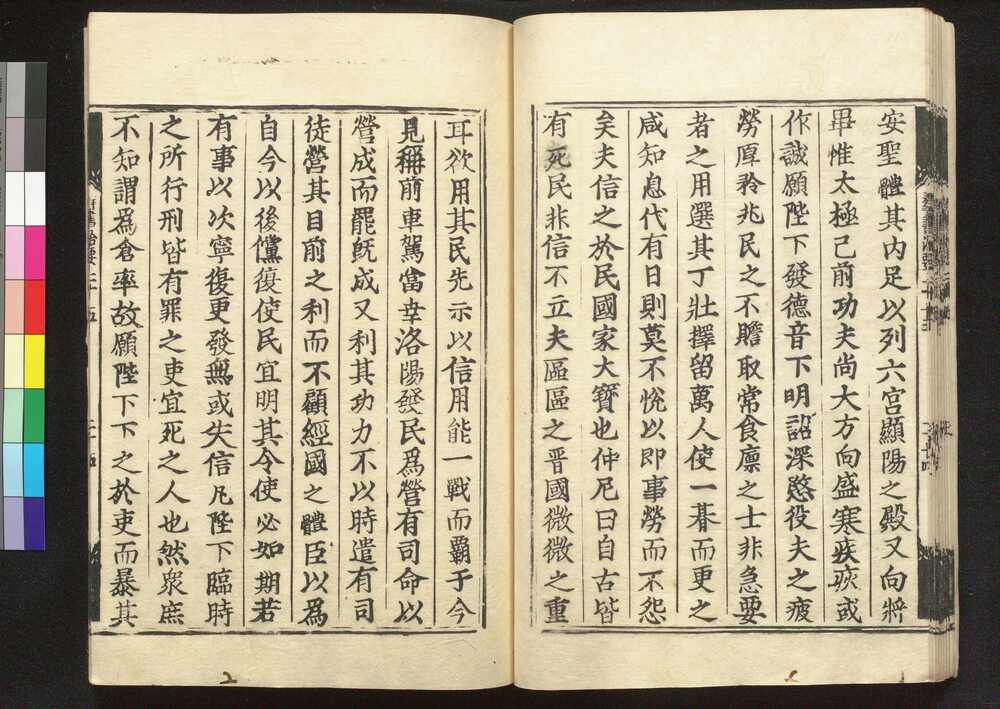 安聖體其内足以列六宮顯陽之殿又向將
畢惟太極已前功夫尚大方向盛寒疾疢或
作誠願陛下發德音下明詔深愍役夫之疲
勞厚矜兆民之不贍取常食廪之士非急要
者之用選其丁壯擇留萬人使一朞而更之
咸知息代有日則莫不悅以即事勞而不怨
矣夫信之於民國家大寶也仲尼曰自古皆
有死民非信不立夫區區之晋國微微之重
耳欲用其民先示以信用能一戰而覇于今
見稱前車駕當幸洛陽發民爲營有司命以
營成而罷旣成又利其功力不以時遣有司
徒營其目前之利而不顧經國之體臣以爲
自今以後儻復使民宜明其令使必如期若
有事以次寧復更發無或失信凡陛下臨時
之所行刑皆有罪之吏宜死之人也然衆庶
不知謂爲倉率故願陛下下之於吏而暴其
群書治要二十五
二十五